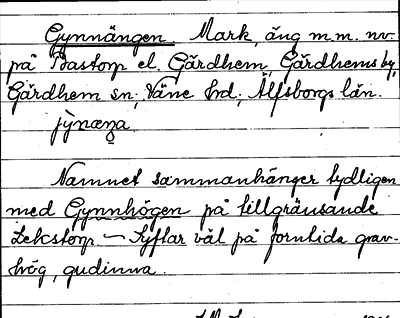 Gynnängen. Mark, äng m.m. nv.
på Bastorp el. Gärdhem, Gärdhems by,
Gärdhem sn, Väne hd, Älfsborgs län.
jỳnæŋa
Namnet sammanhänger tydligen
med Gynnhögen på tillgränsande
Lekstorp. – Syftar väl på forntida grav-
hög, gudinna.